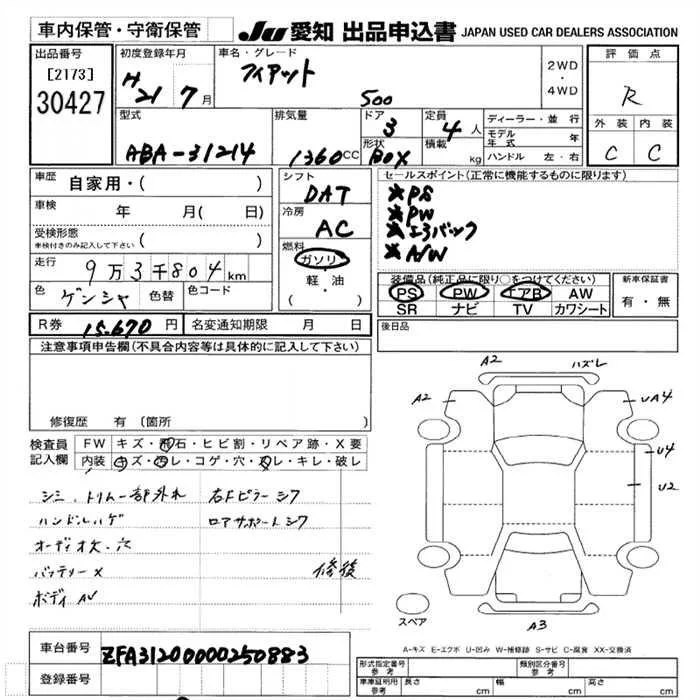 車内保管・守衛保管
JU 愛知 出品申込書 JAPAN USED CAR DEALERS ASSOCIATION
出品番号
[2173]
30427
初度登録年月
H
21 7月
車名・グレード
フィアット
500
2WD
・
4WD
評価点
R
外装 内装
C C
型式
ABA-31214
排気量
1360CC
ドア
3
形状
BOX
定員
4人
積載
kg
ディーラー・並行
モデル年式 年
ハンドル 左・右
車歴
自家用・( )
車検 年 月( 日)
受検形態
車検付きのみ記入して下さい ( )
走行
9万3千804km
色
ゲンシャ
色替
色コード
R券 15,670円
名変通知期限 月 日
シフト
DAT
冷房
AC
燃料
ガソリン
軽・油
( ・ )
セールスポイント(正常に機能するものに限ります)
★PS
★PW
★エアバック
★A/W
装備品(純正品に限り○をつけてください)
PS PW エアB AW
SR ナビ TV カワシート
新車保証書
有・無
後日品
注意事項申告欄(不具合内容等は具体的に記入して下さい)
修復歴 有 (箇所
検査員
記入欄
FW キズ・飛石・ヒビ割・リペア跡・X要
内装 キズ・ヨゴレ・コゲ・穴・スレ・キレ・破レ
シミ、トリム一部外れ 右Fピラーシワ
ハンドルハゲ ロアサポートシワ
オーディオ欠・穴
バッテリーX 修復
ボディAU
A2 ハズレ
A2 UA4
U4
U2
スペア
A3
A-キズ E-エクボ U-凹み W-補修跡 S-サビ C-腐食 XX-交換済
車台番号
ZFA31200000250883
登録番号
形式指定番号
参考
類別区分番号
参考
車庫証明用
参考
長さ cm
幅 cm
高さ cm